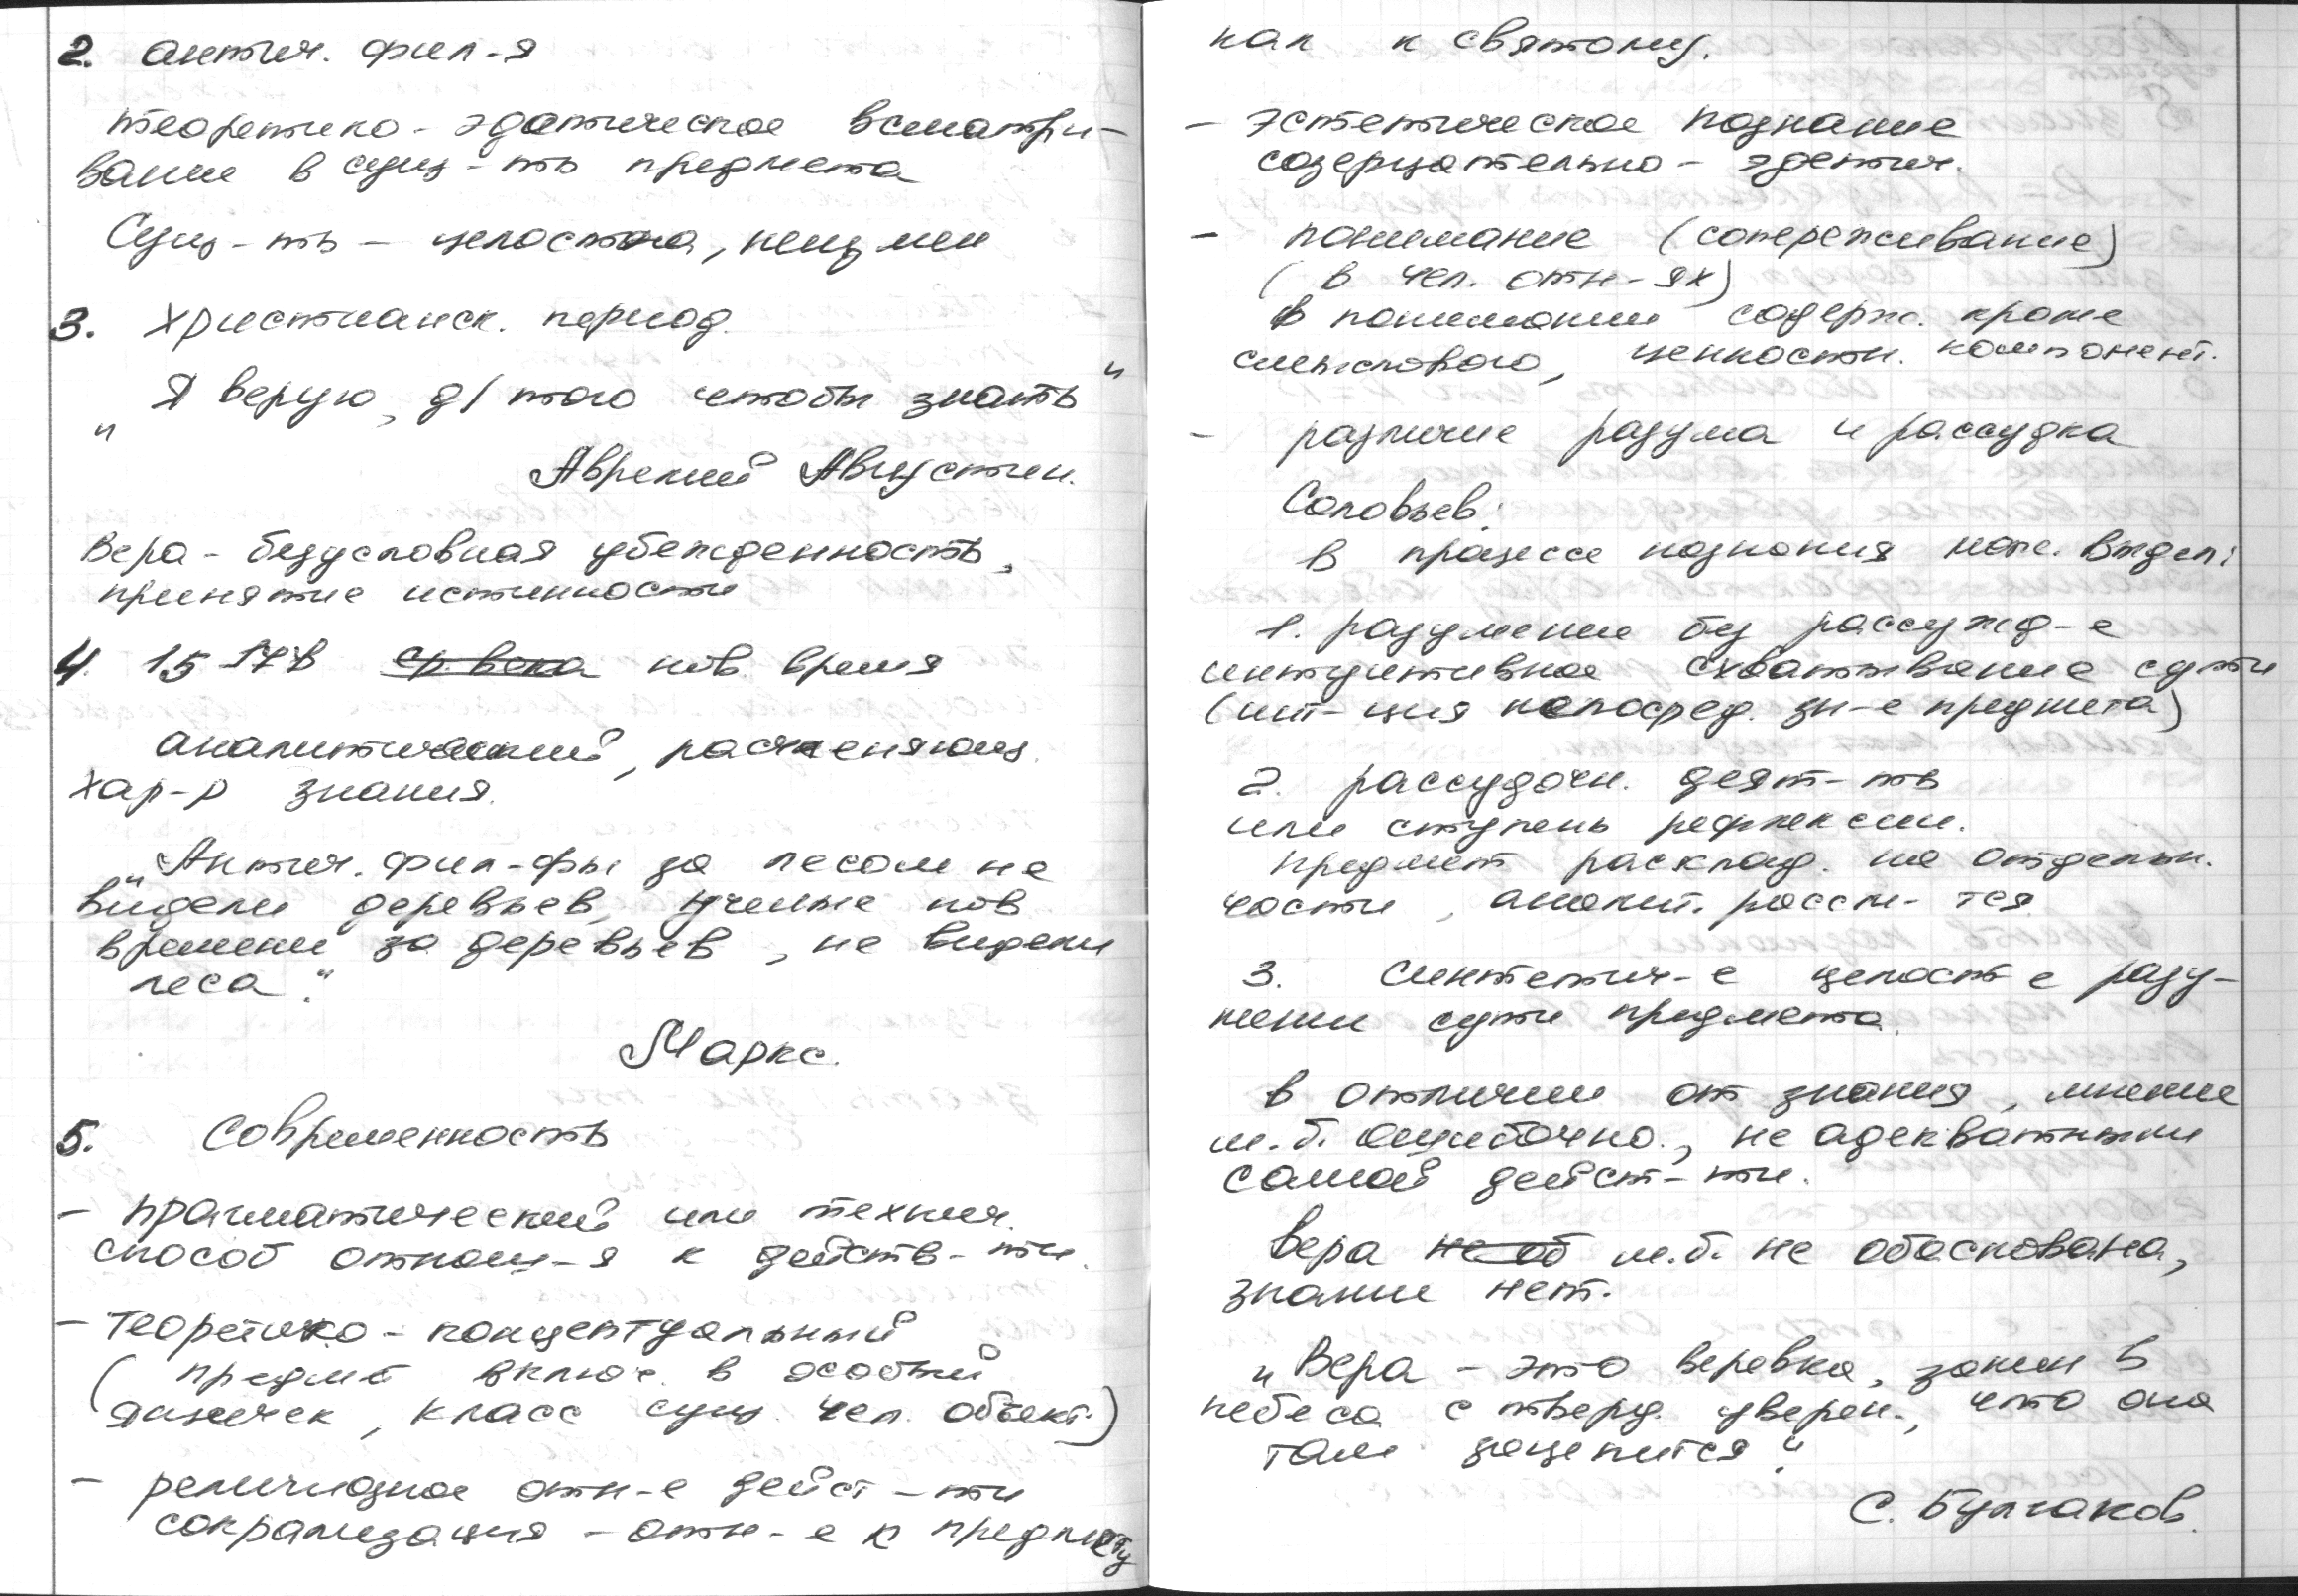 2. антич. фил-я
теоретико - эдетическое всматри-
вание в сущ-ть предмета
Сущ-ть - целостна, неизмен
3. Христианск. период.
"Я верую, д/ того чтобы знать"
Аврелий Августин.
Вера - безусловная убежденность,
принятие истинности
4. 15 17 в ср. века нов. время
аналитический, расчленяющ.
хар-р знания.
"Антич. фил-фы за лесом не
видели деревьев, ученые нов
времени за деревьев, не видели
леса."
Маркс.
5. Современность
- прагматический или технич.
способ отнош-я к действ-ти.
- теоретико - концептуальный
(предмет включ. в особый
ящичек, класс сущ. чел. объект.)
- религиозное отн-е дейст-ти
сокрализация - отн-е к предмету
как к святому.
- эстетическое познание
созерцательно - эдетич.
- понимание (сопереживание)
(в чел. отн-ях)
в понимании содерж. кроме
смыслового, ценностн. компонент.
- различие разума и рассудка
Соловьев:
в процессе познания мож. выдел:
1. разумение без рассужд-е
интуитивное схватывание сути
(инт-ция непосред. зн-е предмета)
2. рассудочн. деят-ть
или ступень рефлексии.
предмет расклад. на отдельн.
части, аналит. рассм-тся
3. синтетич-е целост-е разу-
мении сути предмета.
в отличии от знания, мнение
м.б. ошибочно., не адекватным
самой дейст-ти.
Вера не об м.б. не обоснована,
знание нет.
"Вера - это веревка, закин в
небеса с тверд. уверен., что она
там зацепится"
С. Булгаков.